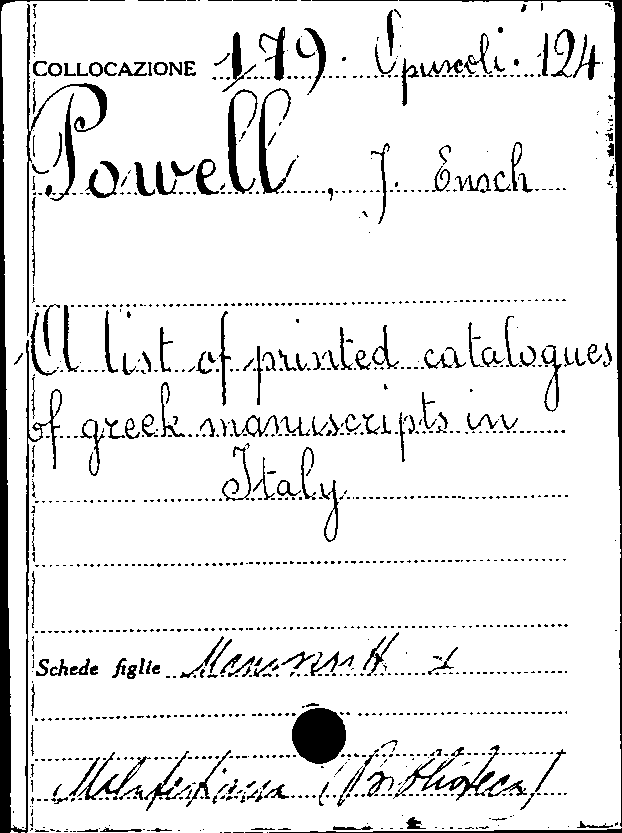 COLLOCAZIONE 179. Opuscoli. 124
Powell, J. Ensch
A list of printed catalogues
of greek manuscripts in
Italy
Schede figlie Manoscritti
Malatestiana (Biblioteca)